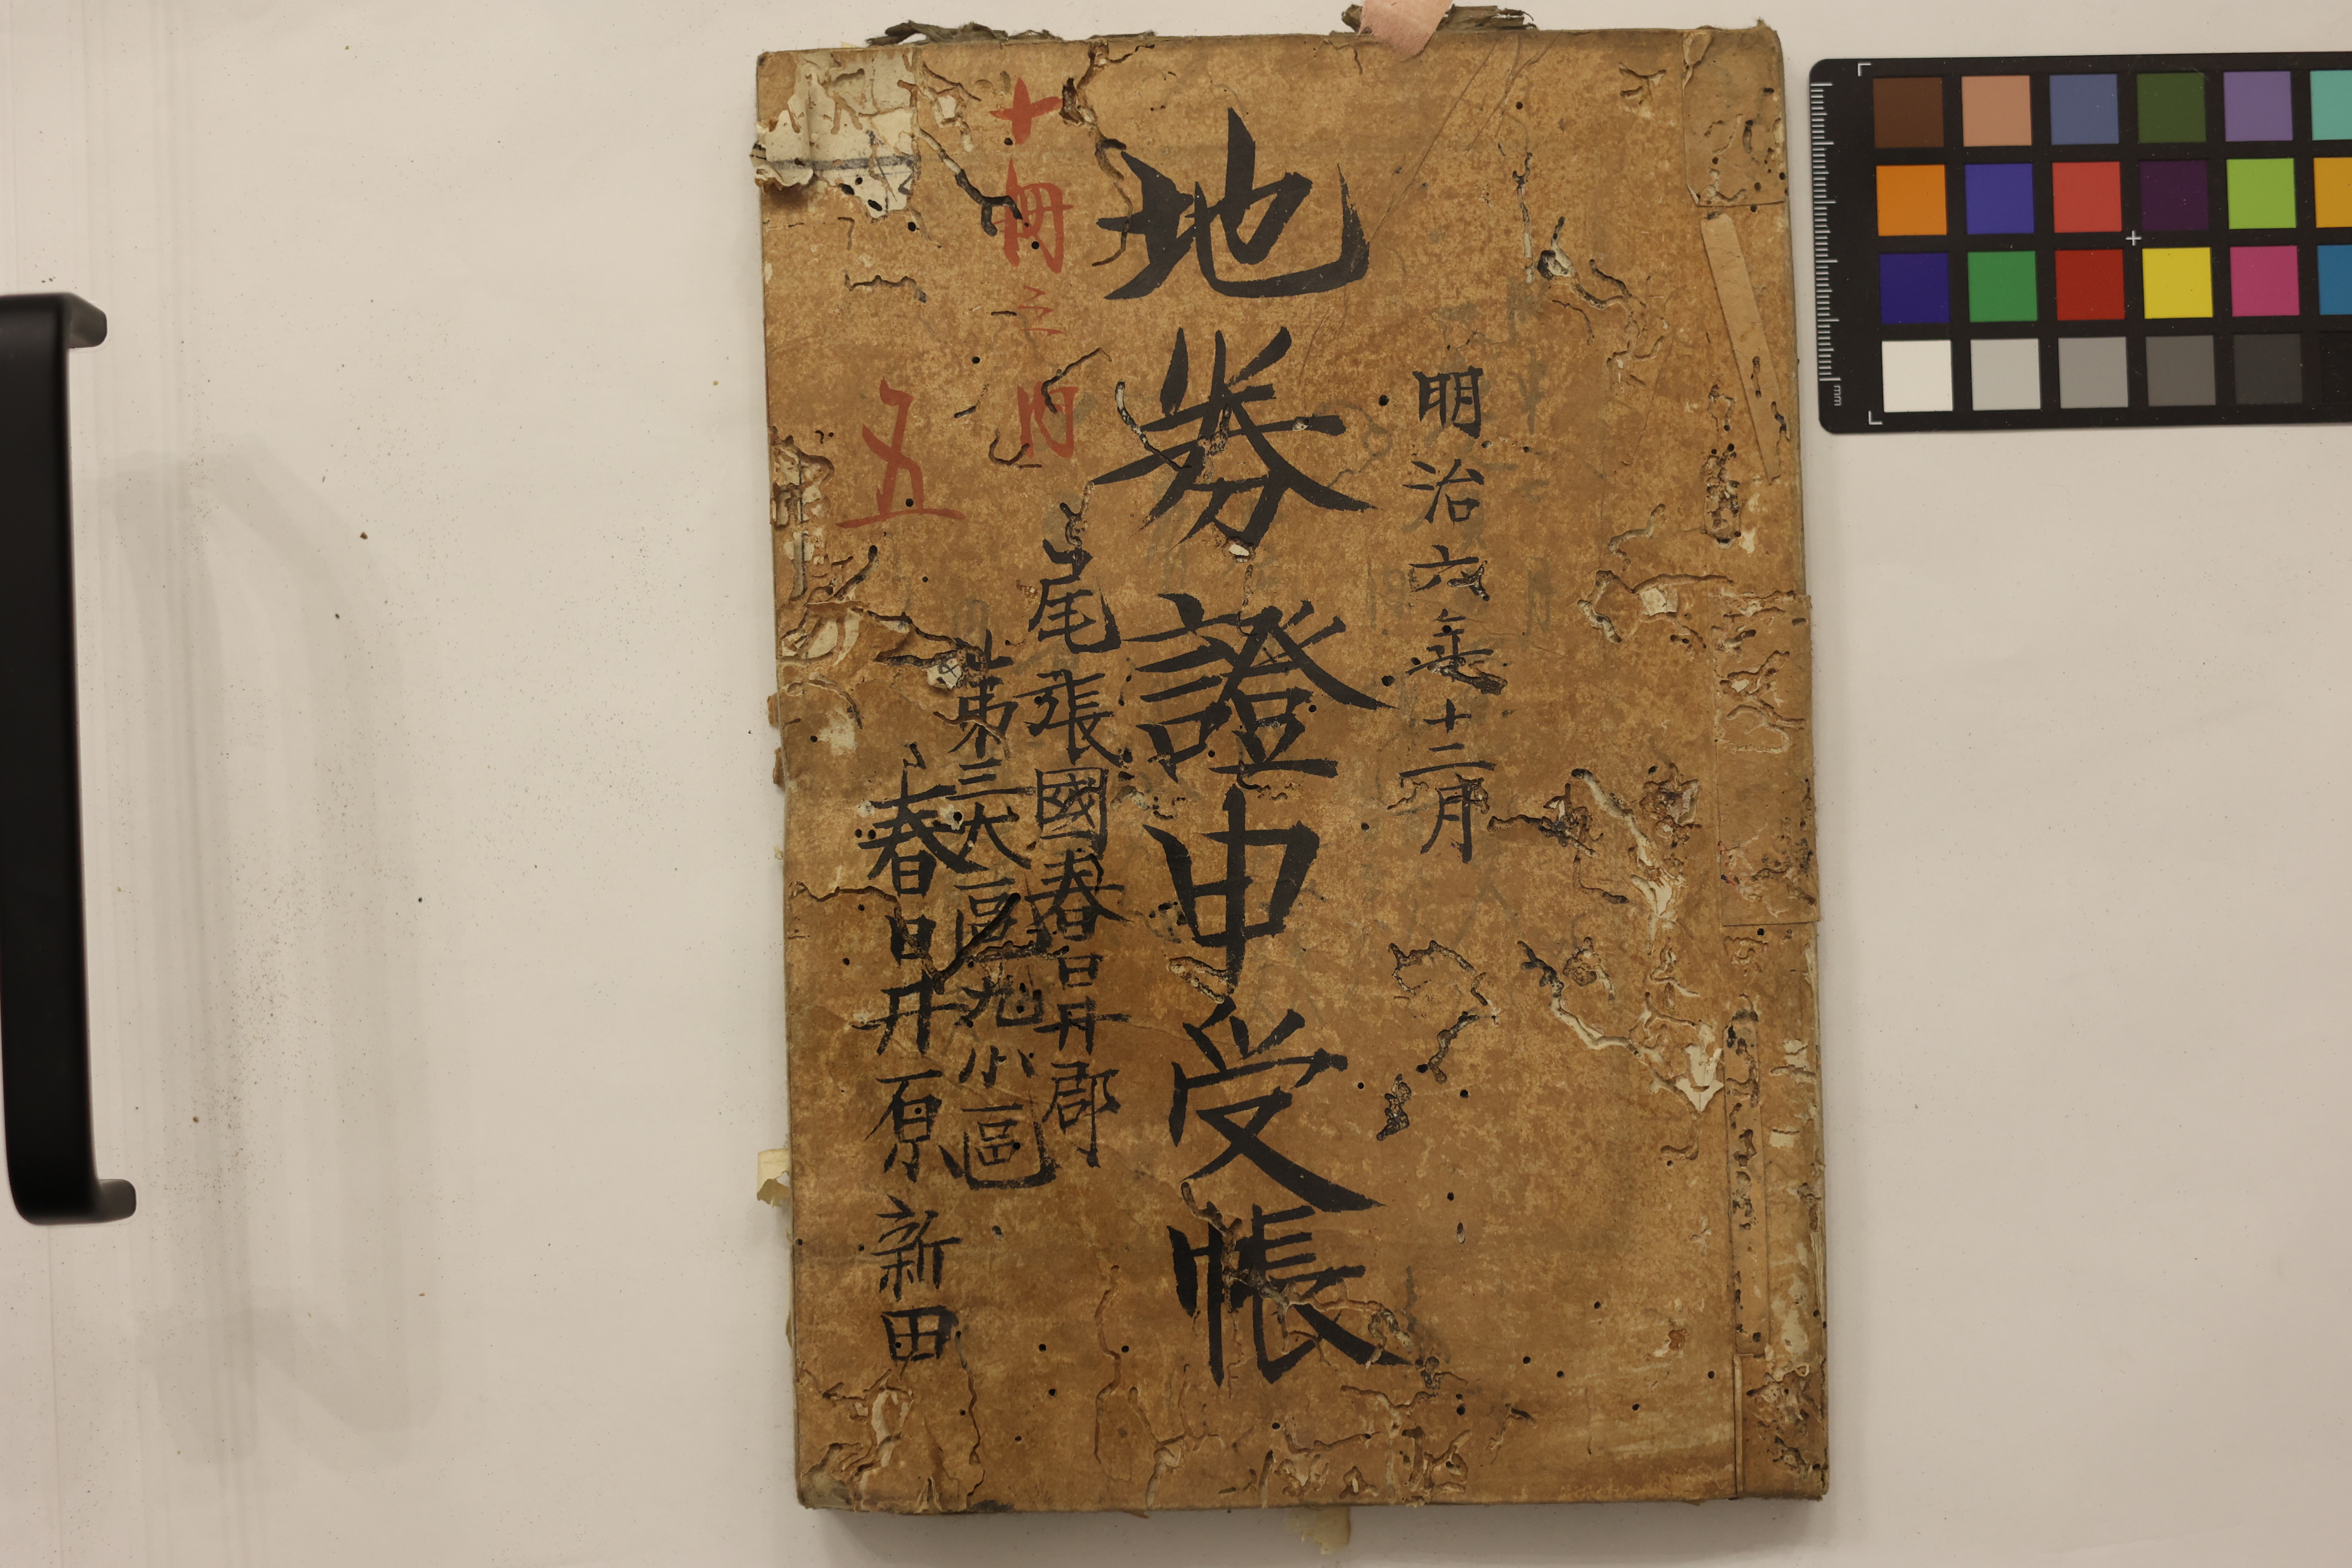 明治六年十二月
地券證申受帳
十冊之内
五
尾張國春日井郡
第三大區九小區
春日井原新田
mm